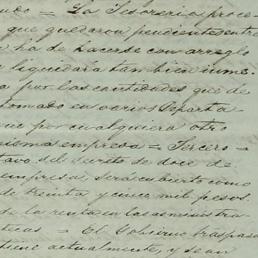 = La Tesoreria proce-
que quedaron pendientes entre
ha de hacerse con arreglo
liquidará tambien inme-
a por las cantidades que de
tomado en varios Departa-
que por cualquiera otro
misma empresa = Tercero =
tavo del decreto de doce de
empresa será cubierto como
de treinta y cinco mil pesos.
de la renta en las administra-
= El Gobierno traspasa
tiene actualmente, y sean